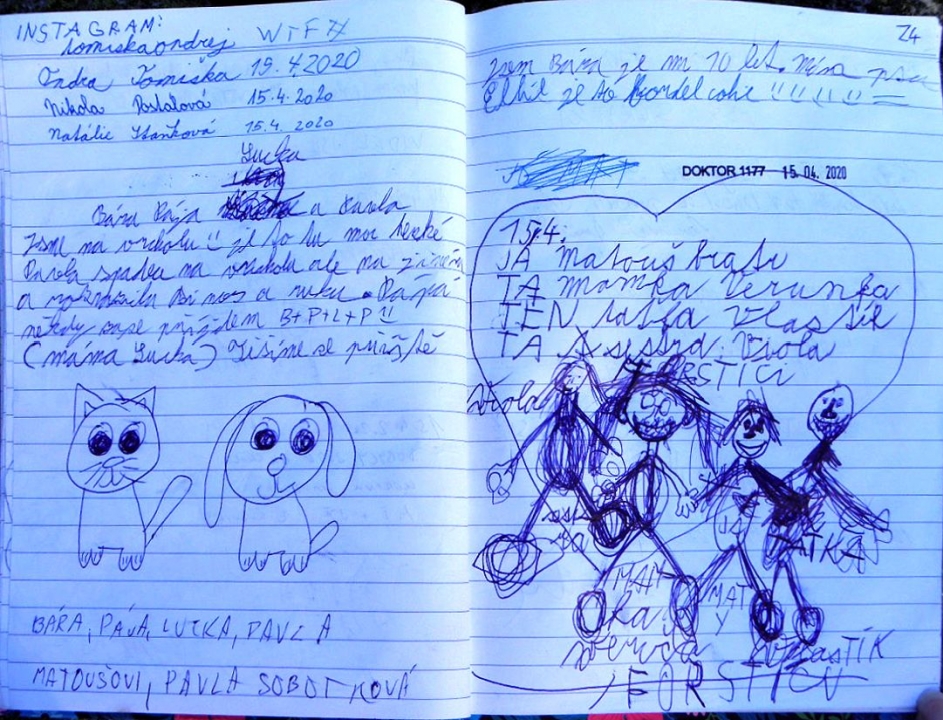 INSTAGRAM:
tomiskaondrej WTFH
Ondra Tomiška 15.4.2020
Nikola Dostálová 15.4.2020
Natálie 15.4.2020
Lucka
Bára Pája a Pavla
Jsme na vrcholu !! je to tu moc hezké
Pavla spadla na vrcholu ale na
a nos a ruku
někdy zase přijdem B+P+L+P !!
(máma Lucka) Těšíme se příště
BÁRA, PÁJA, LUCKA, PAVLA
MATOUŠOVI, PAVLA SOBOTKOVÁ
24
Jsem Bára je mi 10 let.
je to !!!!!
DOKTOR 1177 15.04.2020
15.4.
JÁ Matouš
TA Mamka Verunka
TEN taťka Vlastík
TA sestra Viola
FORSTICI
Viola
JÁ
TAŤKA
MAM
ka
MAT
Y
Veruna
Vlastík
FORSTICI